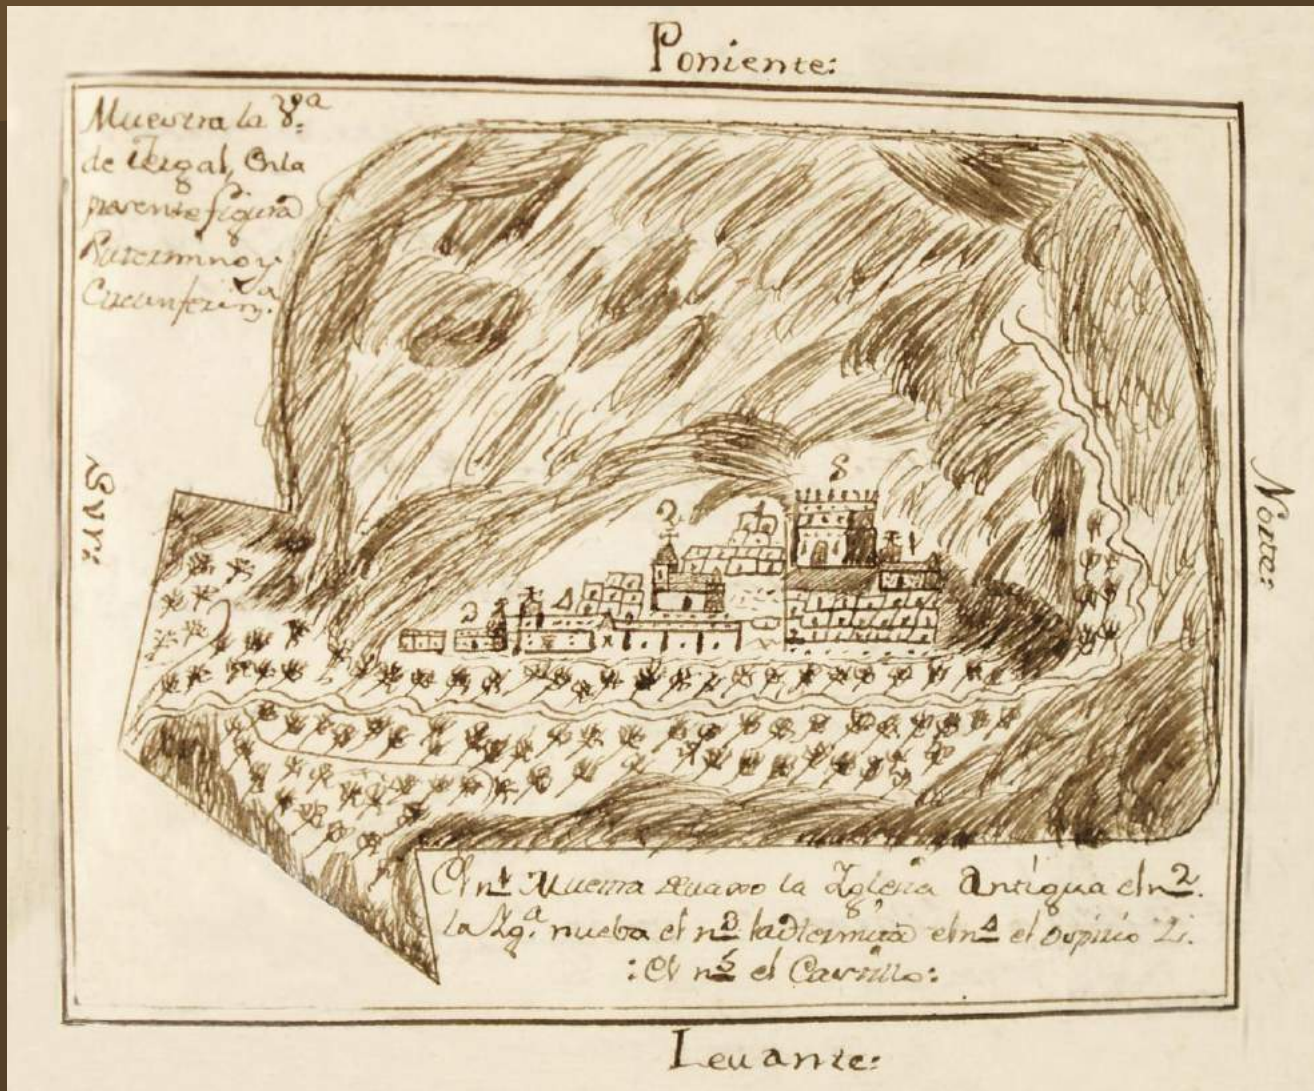 Poniente:
Muestra la Vª
de Tergal, En la
presente figura
Su termino y
Circunferenª.
Sur:
Norte:
2
1
5
1
3
4
2
El nº 1 Muestra el caxco la Iglesia Antigua el nº 2.
la Igª. nueba el nº 3 la Hermita el nº 4 el Ospicio
: El nº 5 el Castillo:
Levante: